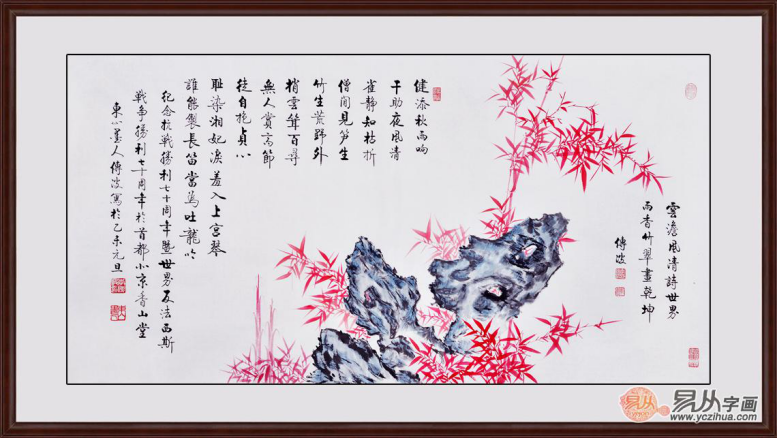 雲澹風清詩世界
雨香竹翠畫乾坤
傳波
健添秋雨响
干助夜風清
雀静知枯折
僧閒見笋生
竹生荒野外
梢雲聳百尋
無人賞高節
徒自抱貞心
耻染湘妃淚羞入上宮琴
誰能製長笛當爲吐龍吟
纪念抗戰勝利七十周年暨世界反法西斯
戰争勝利七十周年於首都北京香山堂
人傳波寫於乙未元旦
易从
易从字画
www.yczihua.com